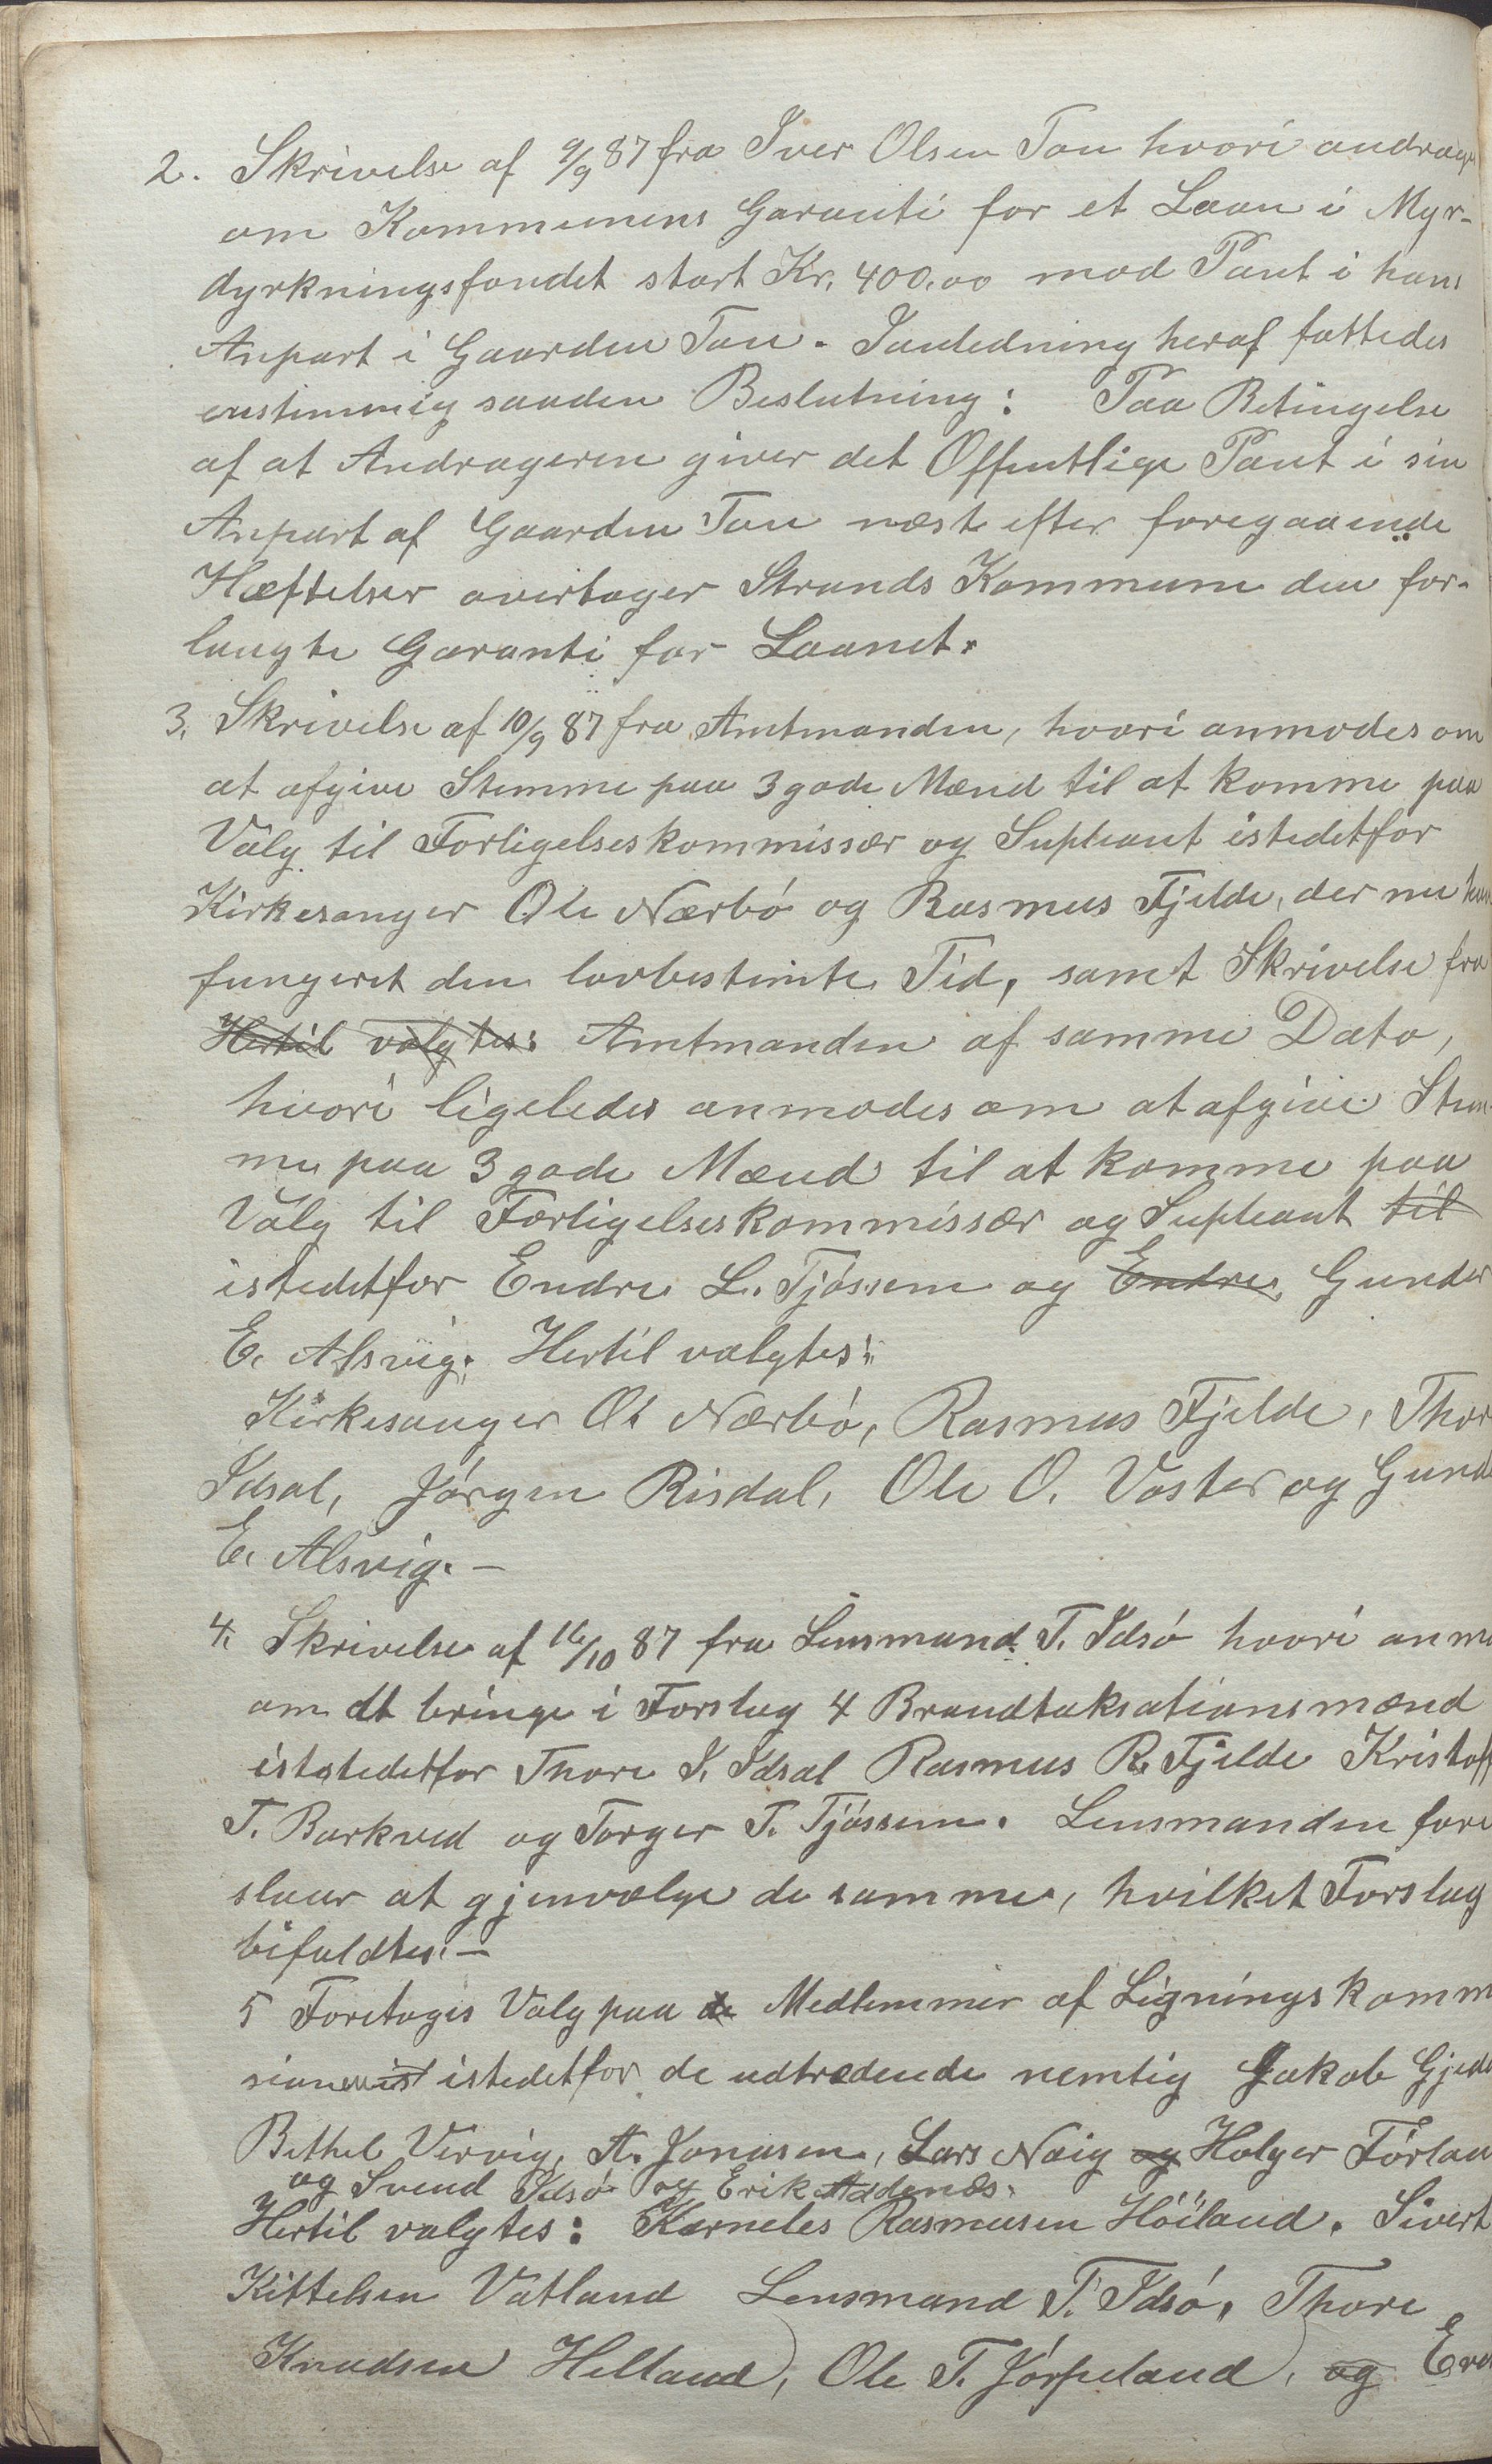 2. Skrivelse af 9/9 87 fra Iver Olsen Tau hvori andrages
om Kommunens Garanti for et Laan i Myr-
dyrkningsfondet stort Kr. 400.00 mod Pant i hans
Anpart i Gaarden Tau. Ianledning heraf fattedes
enstimmig saaden Beslutning: Paa Betingelse
af at Andrageren giver det Offentlige Pant i sin
Anpart af Gaarden Tau næst efter foregaaende
Hæftelser overtager Strands Kommune den for-
langte Garanti for Laanet.
3. Skrivelse af 10/9 87 fra Amtmanden, hvori anmodes om
at afgive Stemme paa 3 gode Mænd til at komme paa
Valg til Forligelseskommissær og Supleant istedetfor
Kirkesanger Ole Nærbö og Rasmus Fjelde, der nu har
fungeret den lovbestimte Tid, samt Skrivelse fra
Hertil valgtes: Amtmanden af samme Dato,
hvori ligeledes anmodes om at afgive Stem-
me paa 3 gode Mænd til at komme paa
Valg til Forligelseskommissær og Supleant til
istedetfor Endre L. Tjössem og Endre Gunder
E. Alsvig. Hertil valgtes:
Kirkesanger Ole Nærbö, Rasmus Fjelde, Thore
Idsal, Jörgen Risdal, Ole O. Voster og Gunder
E. Alsvig. —
4. Skrivelse af 16/10 87 fra Lensmand T. Idsö hvori anmo
om at bringe i Forslag 4 Brandtaksationsmænd
istedetfor Thore I. Idsal Rasmus R. Fjelde Kristoff
T. Barkved og Torger T. Tjössem. Lensmanden fore
slaar at gjenvælge de samme, hvilket Forslag
bifaldtes. —
5 Foretoges Valg paa de Medlemmer af Ligningskomm
sionen istedetfor de udtrædende nemlig Jakob Gjede
Bethel Vervig, A. Jonasen, Lars Naig og Holger Förlan
og Svend Idsö og Erik Addenæs.
Hertil valgtes: Karneles Rasmusen Höiland. Sivert
Kittelsen Vatland Lensmand T. Idsö, Thore
Knudsen Helland, Ole T. Jörpeland, og